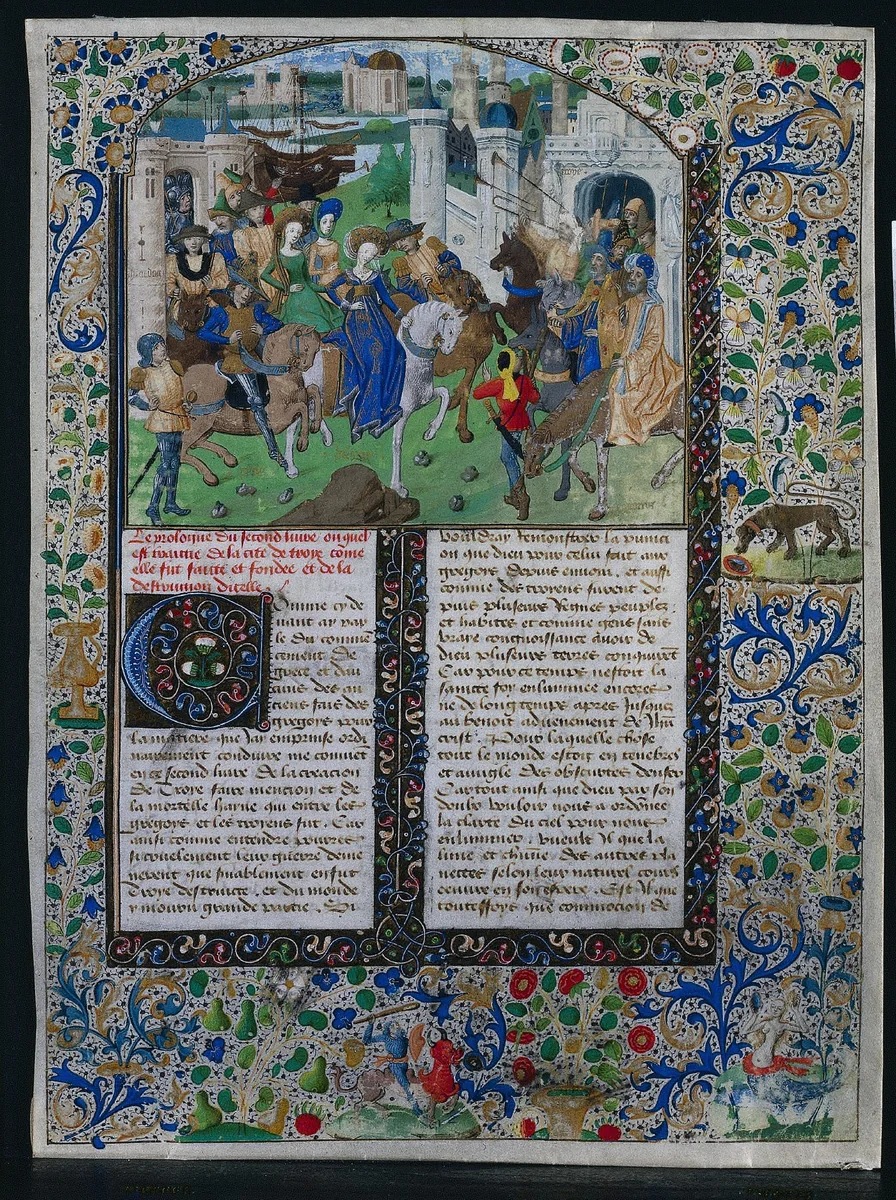 Le prologue du second livre ou quel
est traittie de la cite de troye come
elle fut faitte et fondee et de la
destruction dicelle
Comme cy de
uant ay par
le du commē
cement de
grece et dau
cuns des an
ciens fais des
gregois pour
la matiere que Jay emprinse ordi
nairement conduire me conuiēt
en ce second liure de la creacion
de Troye faire mencion et de
la mortelle hayne qui entre les
gregois et les troyens fut. Car
ainsi comme entendre pourrez
si cruelement leur guerre deme
nerent que finablement en fut
Troye destruicte, et du monde
y mouru grande partie. Si
vouldray remonstrer la punici
on que dieu pour celui fait aux
gregois depuis enuoia, et aussi
comme des troyens furent de
puis plusieurs Regnes peuplez
et habitez et comme gens sans
vraye congnoissance auoir de
dieu plusieurs terres conquirēt
Car pour ce temps nestoit la
saincte foy enluminee encores
ne de long temps apres Jusques
au benoit aduenement de
crist. Pour laquelle chose
tout le monde estoit en tenebres
et aueugle des obscurtes denfer
Car tout ainsi que dieu par son
doulz vouloir nous a ordonne
la clarte du ciel pour nous
enluminer, vueult Il que la
lune et chūne des autres pla
nettes selon leur naturel cours
oeuure en son espere. Est Il que
touteffoys que commocion de